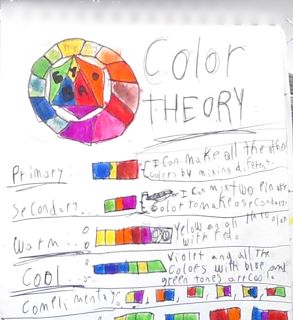 Color
THEORY
Primary
I Can make all the other
Colors by mixing different.
Secondary
I Can mix two
Color to make secondary.
Warm
Yellow
with red
Cool
Violet and all the
Colors with blue and
green tones are cool
Complimentary